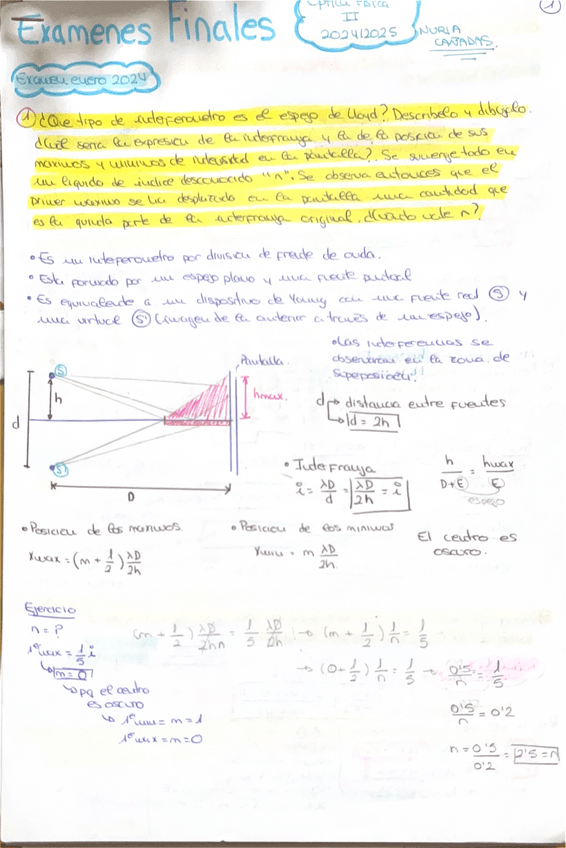 Examenes Finales
Óptica Física
II
2024/2025
NURIA
CAÑADAS.
1
Examen enero 2024
1 ¿Que tipo de interferometro es el espejo de Lloyd? Describelo y dibujalo.
¿Cuál seria la expresion de la interfranja y la de la posicion de sus
maximos y minimos de intensidad en la pantalla?. Se sumerge todo en
un liquido de indice desconocido "n". Se observa entonces que el
primer maximo se ha desplazado en la pantalla una cantidad que
es la quinta parte de la interfranja original. ¿Cuánto vale n?
• Es un interferometro por division de frente de onda.
• Esta formado por un espejo plano y una fuente puntual
• Es equivalente a un dispositivo de Young con una fuente real S y
una virtual S' (imagen de la anterior a través de un espejo).
Pantalla.
S
h
d
hmax.
S'
D
• Las interferencias se
observaran en la zona de
superposición!!
d → distancia entre fuentes
→ d = 2h
• Interfranja
i = λD/d = λD/2h = i
h/D+E = hmax/E
espejo
• Posicion de los maximos.
xmax = (m + 1/2) λD/2h
• Posicion de los minimos
xmin = m λD/2h
El centro es
oscuro.
Ejercicio
n = ?
1º max = 1/5 i
→ m = 0
→ pq el centro
es oscuro
→ 1º min = m = 1
1º max = m = 0
(m + 1/2) λD/2hn = 1/5 λD/2h → (m + 1/2) 1/n = 1/5
→ (0 + 1/2) 1/n = 1/5 → 0'5/n = 1/5
0'5/n = 0'2
n = 0'5/0'2 = 2'5 = n